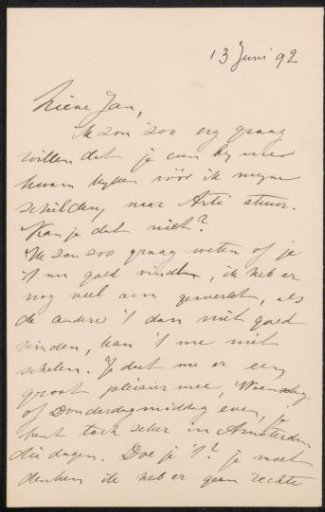 13 Juni 92
Lieve Jan,
Ik zou zoo erg graag
willen dat je eens by mee
kwam kyken vóór ik myne
schildery naar Arti stuur.
Kan je dat niet?
Ik zou zoo graag weten of je
't nu goed vindt, ik heb er
nog veel aan gewerkt, als
de andere 't dan niet goed
vinden, kan 't me niet
schelen. Je doet me er een
groot pleisier mee, Woensdag
of Donderdagmiddag even, je
bent toch zeker in Amsterdam
die dagen. Doe je 't? je moet
denken ik heb er geen rechte